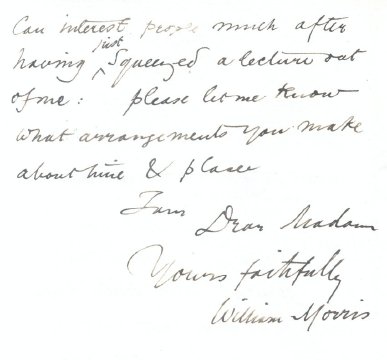 Can interest people much after
having just squeezed a lecture out
of me: please let me know
what arrangements you make
about time & place
I am
Dear Madam
Yours faithfully
William Morris